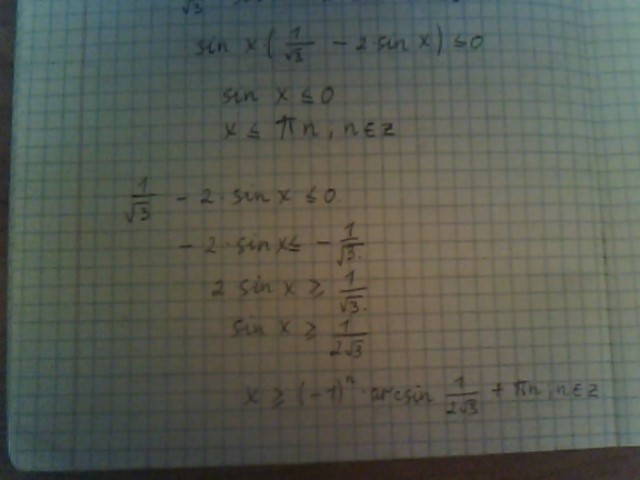 √3
sin x (1/√3 - 2 sin x) ≤ 0
sin x ≤ 0
x ≤ πn, n∈z
1/√3 - 2 · sin x ≤ 0
- 2 · sin x ≤ - 1/√3.
2 sin x ≥ 1/√3.
sin x ≥ 1/2√3
x ≥ (-1)ⁿ · arcsin 1/2√3 + πn, n∈z